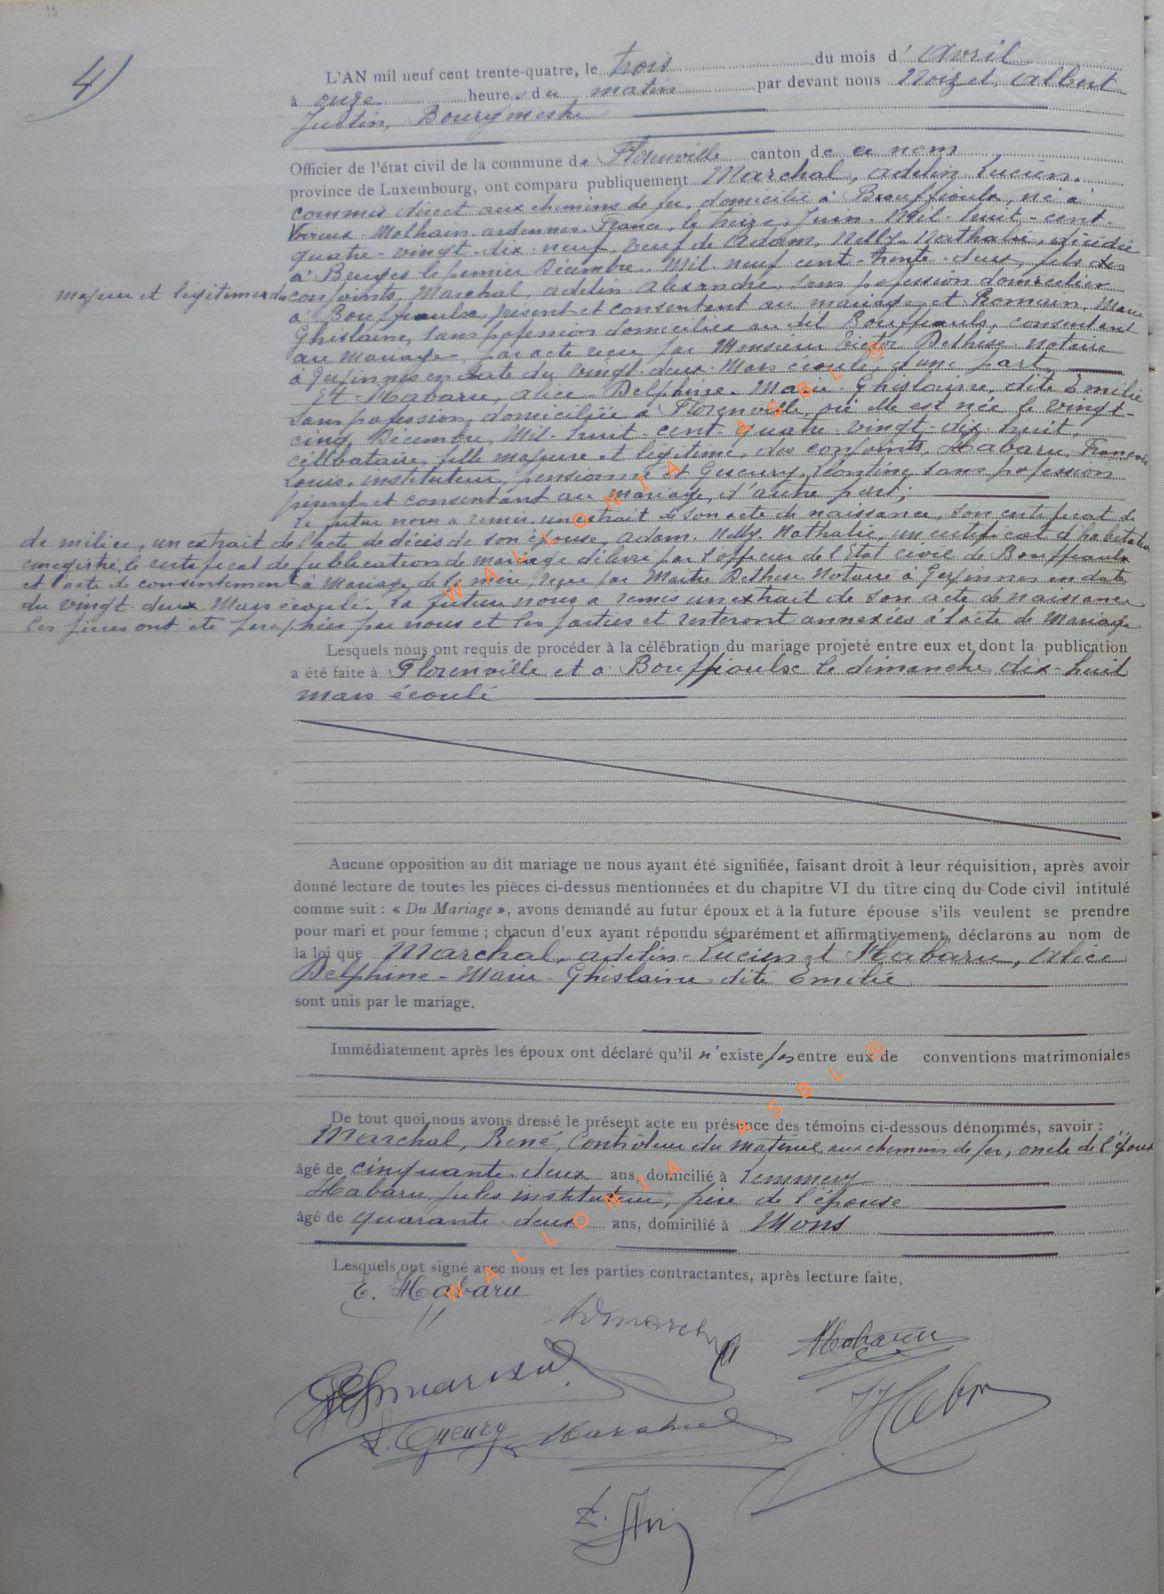 4)
L'AN mil neuf cent trente-quatre, le trois du mois d'Avril
à onze heures du matin par devant nous Noizet, Albert
Justin, Bourgmestre
Officier de l'état civil de la commune de Florenville canton de ce nom
province de Luxembourg, ont comparu publiquement Marchal, Adelin Lucien.
commis direct aux chemins de fer, domicilié à Bouffioulx, né à
Vireux-Molhain-ardennes-France, le treize Juin Mil-huit-cent-
quatre-vingt-dix-neuf, veuf de Adam, Nelly-Nathalie, décédée
à Bruges le premier Décembre Mil neuf cent-trente-deux, fils des
majeur et légitime des
conjoints, Marchal, adelin-alexandre, sans profession domicilier
à Bouffioulx présent et consentant au mariage et Romain, Marie
Ghislaine, sans profession domiciliée au dit Bouffioulx, consentant
au Mariage, par acte reçu par Monsieur Victor Dethese notaire
à Gerpinnes en date du vingt-deux-Mars écoulé, d'une part
Et Habaru, Alice-Delphine-Marie-Ghislaine, dite Emilie
Sans profession, domiciliée à Florenville, où elle est née le vingt-
cinq Décembre, Mil-huit-cent-quatre-vingt-dix-huit,
célibataire, fille majeure et légitime, des conjoints, Habaru, François
Louis, instituteur, pensionné et Gueury, Léontine sans profession
présent et consentant au mariage, d'autre part;
Le futur nous a remis un extrait de son acte de naissance, son certificat de
de milice, un extrait de l'acte de décès de son épouse, Adam, Nelly Nathalie, un certificat d'habitation
enregistré, le certificat de publication de mariage délivré par l'officier de l'Etat civil de Bouffioulx
et l'acte de consentement à Mariage de la mère, reçu par Maître Dethese Notaire à Gerpinnes en date
du vingt-deux Mars écoulé. La future nous a remis un extrait de son acte de naissance
Ces pièces ont été paraphées par nous et les parties et resteront annexées à l'acte de Mariage
Lesquels nous ont requis de procéder à la célébration du mariage projeté entre eux et dont la publication
a été faite à Florenville et à Bouffioulx le dimanche dix-huit
mars écoulé
Aucune opposition au dit mariage ne nous ayant été signifiée, faisant droit à leur réquisition, après avoir
donné lecture de toutes les pièces ci-dessus mentionnées et du chapitre VI du titre cinq du Code civil intitulé
comme suit : « Du Mariage », avons demandé au futur époux et à la future épouse s'ils veulent se prendre
pour mari et pour femme ; chacun d'eux ayant répondu séparément et affirmativement, déclarons au nom de
la loi que Marchal, adelin-Lucien et Habaru, Alice
Delphine-Marie-Ghislaine dite Emilie
sont unis par le mariage.
Immédiatement après les époux ont déclaré qu'il n'existe pas entre eux de conventions matrimoniales
De tout quoi nous avons dressé le présent acte en présence des témoins ci-dessous dénommés, savoir :
Marchal, René, Contrôleur du matériel aux chemins de fer, oncle de l'époux
âgé de cinquante-deux ans, domicilié à Jemmeux
Habaru, Jules instituteur, père de l'épouse
âgé de quarante-deux ans, domicilié à Mons
Lesquels ont signé avec nous et les parties contractantes, après lecture faite.
E. Habaru
Habaru
L. Gueury
Marchal
WALLONIA ASBL ©
WALLONIA ASBL ©